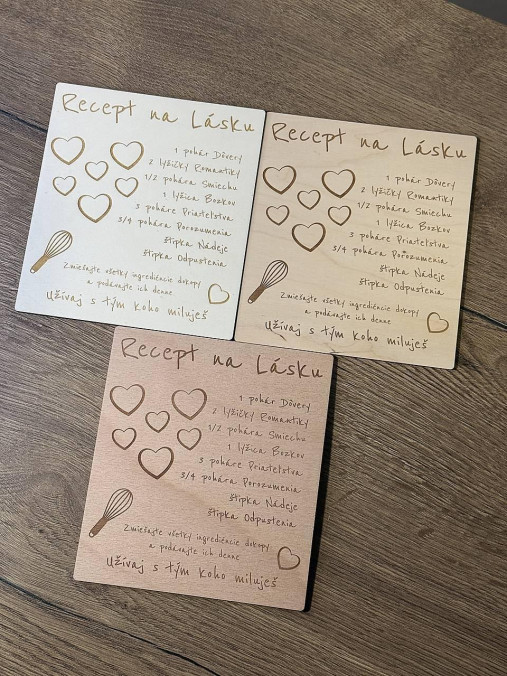 Recept na Lásku
1 pohár Dôvery
2 lyžičky Romantiky
1/2 pohára Smiechu
1 lyžica Bozkov
3 poháre Priateľstva
3/4 pohára Porozumenia
štipka Nádeje
štipka Odpustenia
Zmiešajte všetky ingrediencie dokopy
a podávajte ich denne
Užívaj s tým koho miluješ
Recept na Lásku
1 pohár Dôvery
2 lyžičky Romantiky
1/2 pohára Smiechu
1 lyžica Bozkov
3 poháre Priateľstva
3/4 pohára Porozumenia
štipka Nádeje
štipka Odpustenia
Zmiešajte všetky ingrediencie dokopy
a podávajte ich denne
Užívaj s tým koho miluješ
Recept na Lásku
1 pohár Dôvery
2 lyžičky Romantiky
1/2 pohára Smiechu
1 lyžica Bozkov
3 poháre Priateľstva
3/4 pohára Porozumenia
štipka Nádeje
štipka Odpustenia
Zmiešajte všetky ingrediencie dokopy
a podávajte ich denne
Užívaj s tým koho miluješ